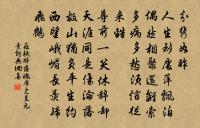 分携如昨
人生到處萍飄泊
偶然相聚還離索
多病多愁須信從
來錯
尊前一笑休辭却
天涯同是傷淪落
故山猶負平生約
西望峨嵋長羨歸
飛鶴
蘇軾醉落魄席上呈元
素詞典網集